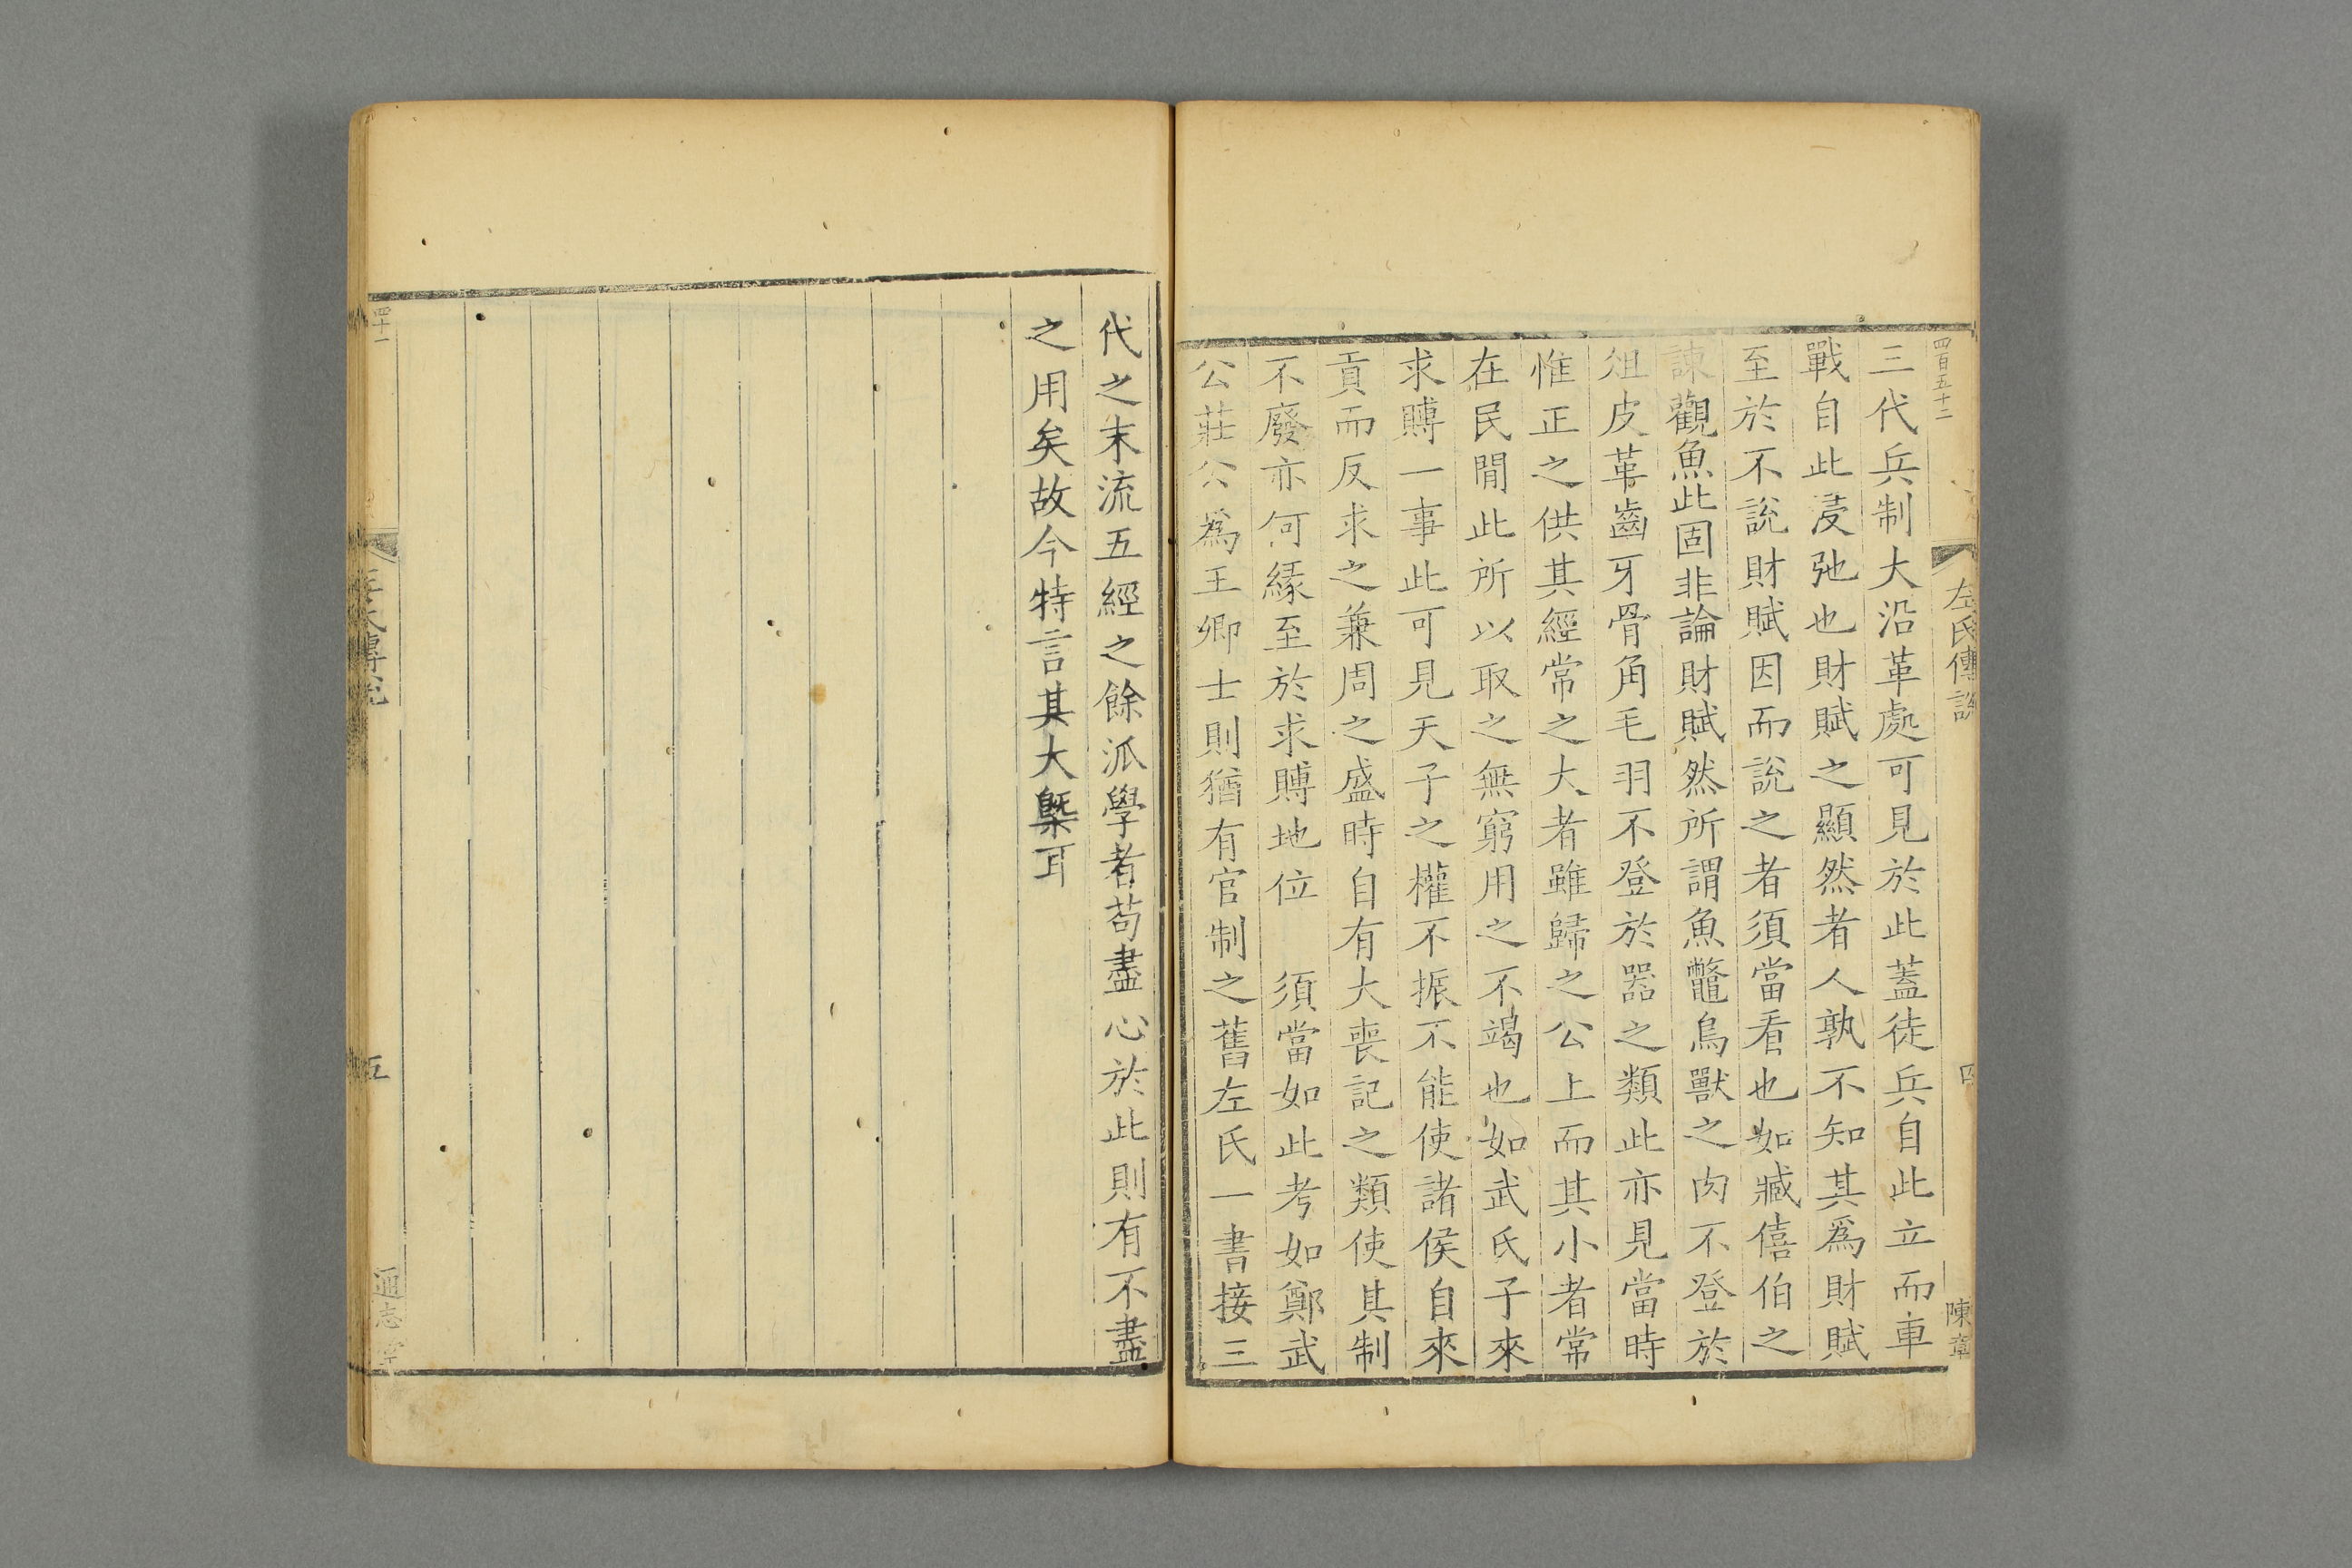 四百五十二
左氏傳說
四
陳章
三代兵制大沿革處可見於此蓋徒兵自此立而車
戰自此浸弛也財賦之顯然者人孰不知其爲財賦
至於不說財賦因而說之者須當看也如臧僖伯之
諫觀魚此固非論財賦然所謂魚鼈鳥獸之肉不登於
俎皮革齒牙骨角毛羽不登於器之類此亦見當時
惟正之供其經常之大者雖歸之公上而其小者常
在民間此所以取之無窮用之不竭也如武氏子來
求賻一事此可見天子之權不振不能使諸侯自來
貢而反求之兼周之盛時自有大喪記之類使其制
不廢亦何緣至於求賻地位 須當如此考如鄭武
公莊公爲王卿士則猶有官制之舊左氏一書接三
代之末流五經之餘派學者苟盡心於此則有不盡
之用矣故今特言其大槩耳
四十一
左氏傳說
五
通志堂